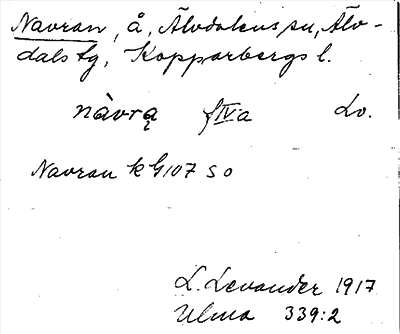 Navran, å, Älvdalens sn, Älv-
dals tg, Kopparbergs l.
nàvrą fIVa Lv.
Navran k G107 so
L. Levander 1917
Ulma 339:2